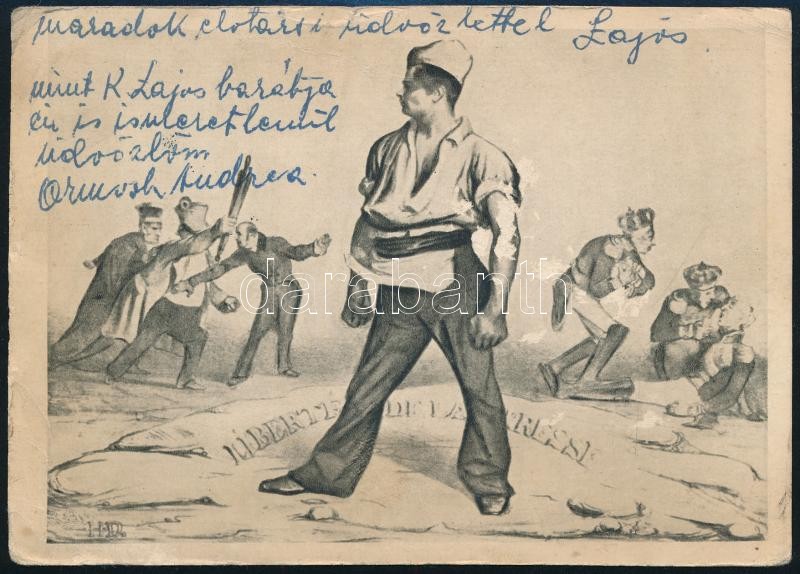 maradok elvtársi üdvözlettel Lajos.
mint K Lajos barátja
én is ismeretlenül
üdvözlöm
Ormosh Andrea.
darabanth
LIBERTE DE LA PRESSE
H.D.